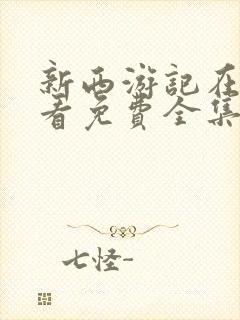 新西游記在
看免費全集
七怪-